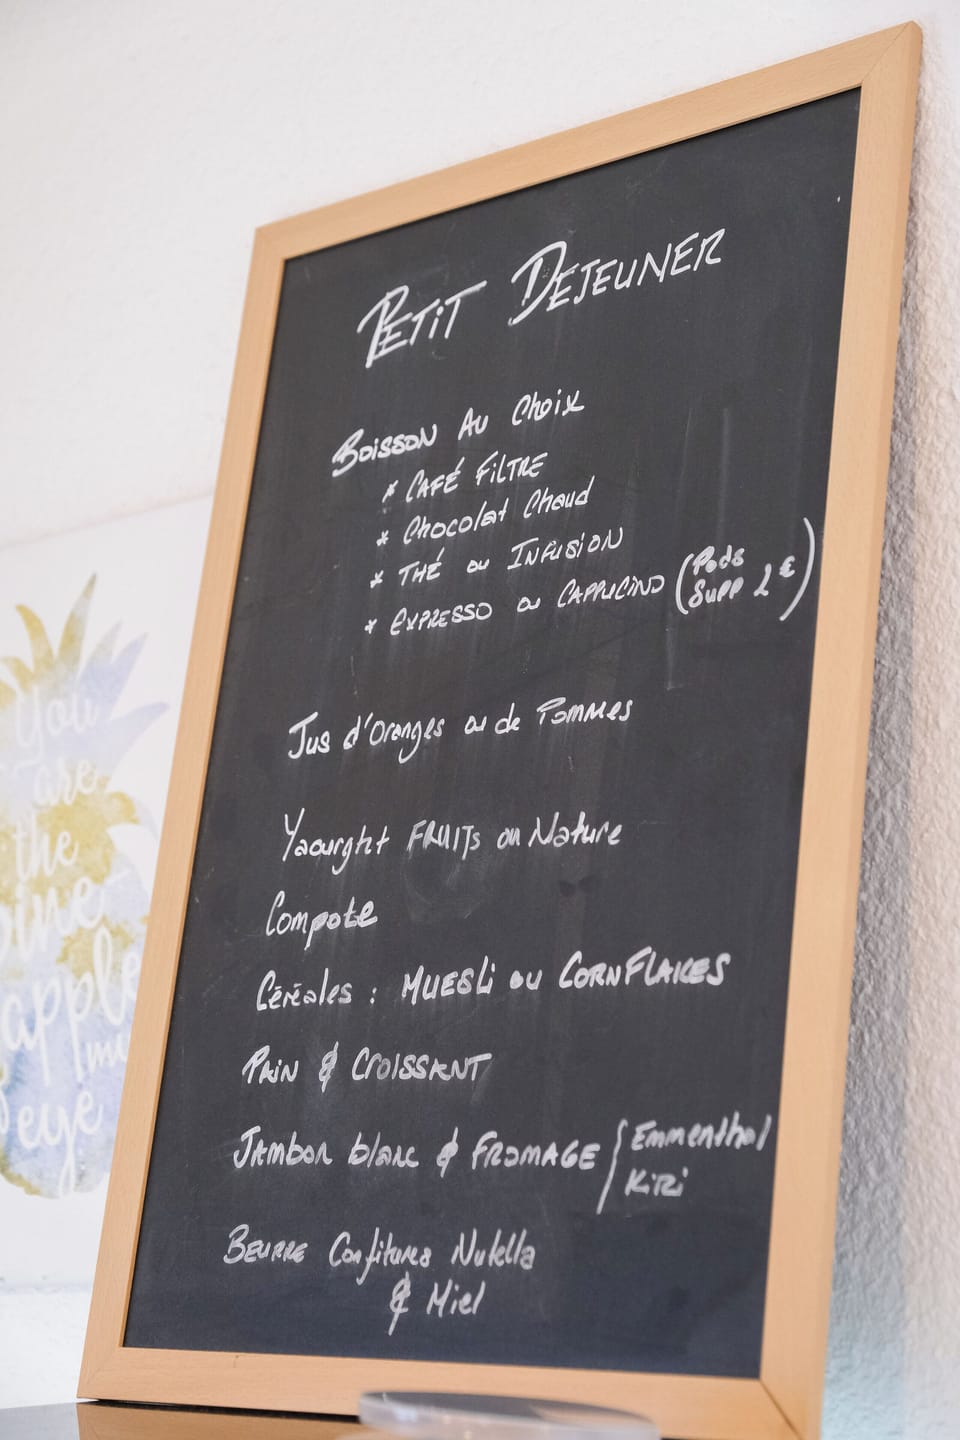 PETIT DEJEUNER
BOISSON AU Choix
* CAFÉ FiLTRE
* Chocolat Chaud
* THÉ ou INFUSION
* EXPRESSO ou CAPPUCINO (Pods
Supp 2 €)
Jus d'Oranges ou de Pommes
Yaourght FRUITs ou Nature
Compote
Céréales : MUESLi ou CORNFLAKES
PAiN & CROISSANT
JAMBON blanc & FROMAGE { Emmenthal
KiRi
BEURRE Confitures Nutella
& Miel
You
are
the
pine
apple
my
eye